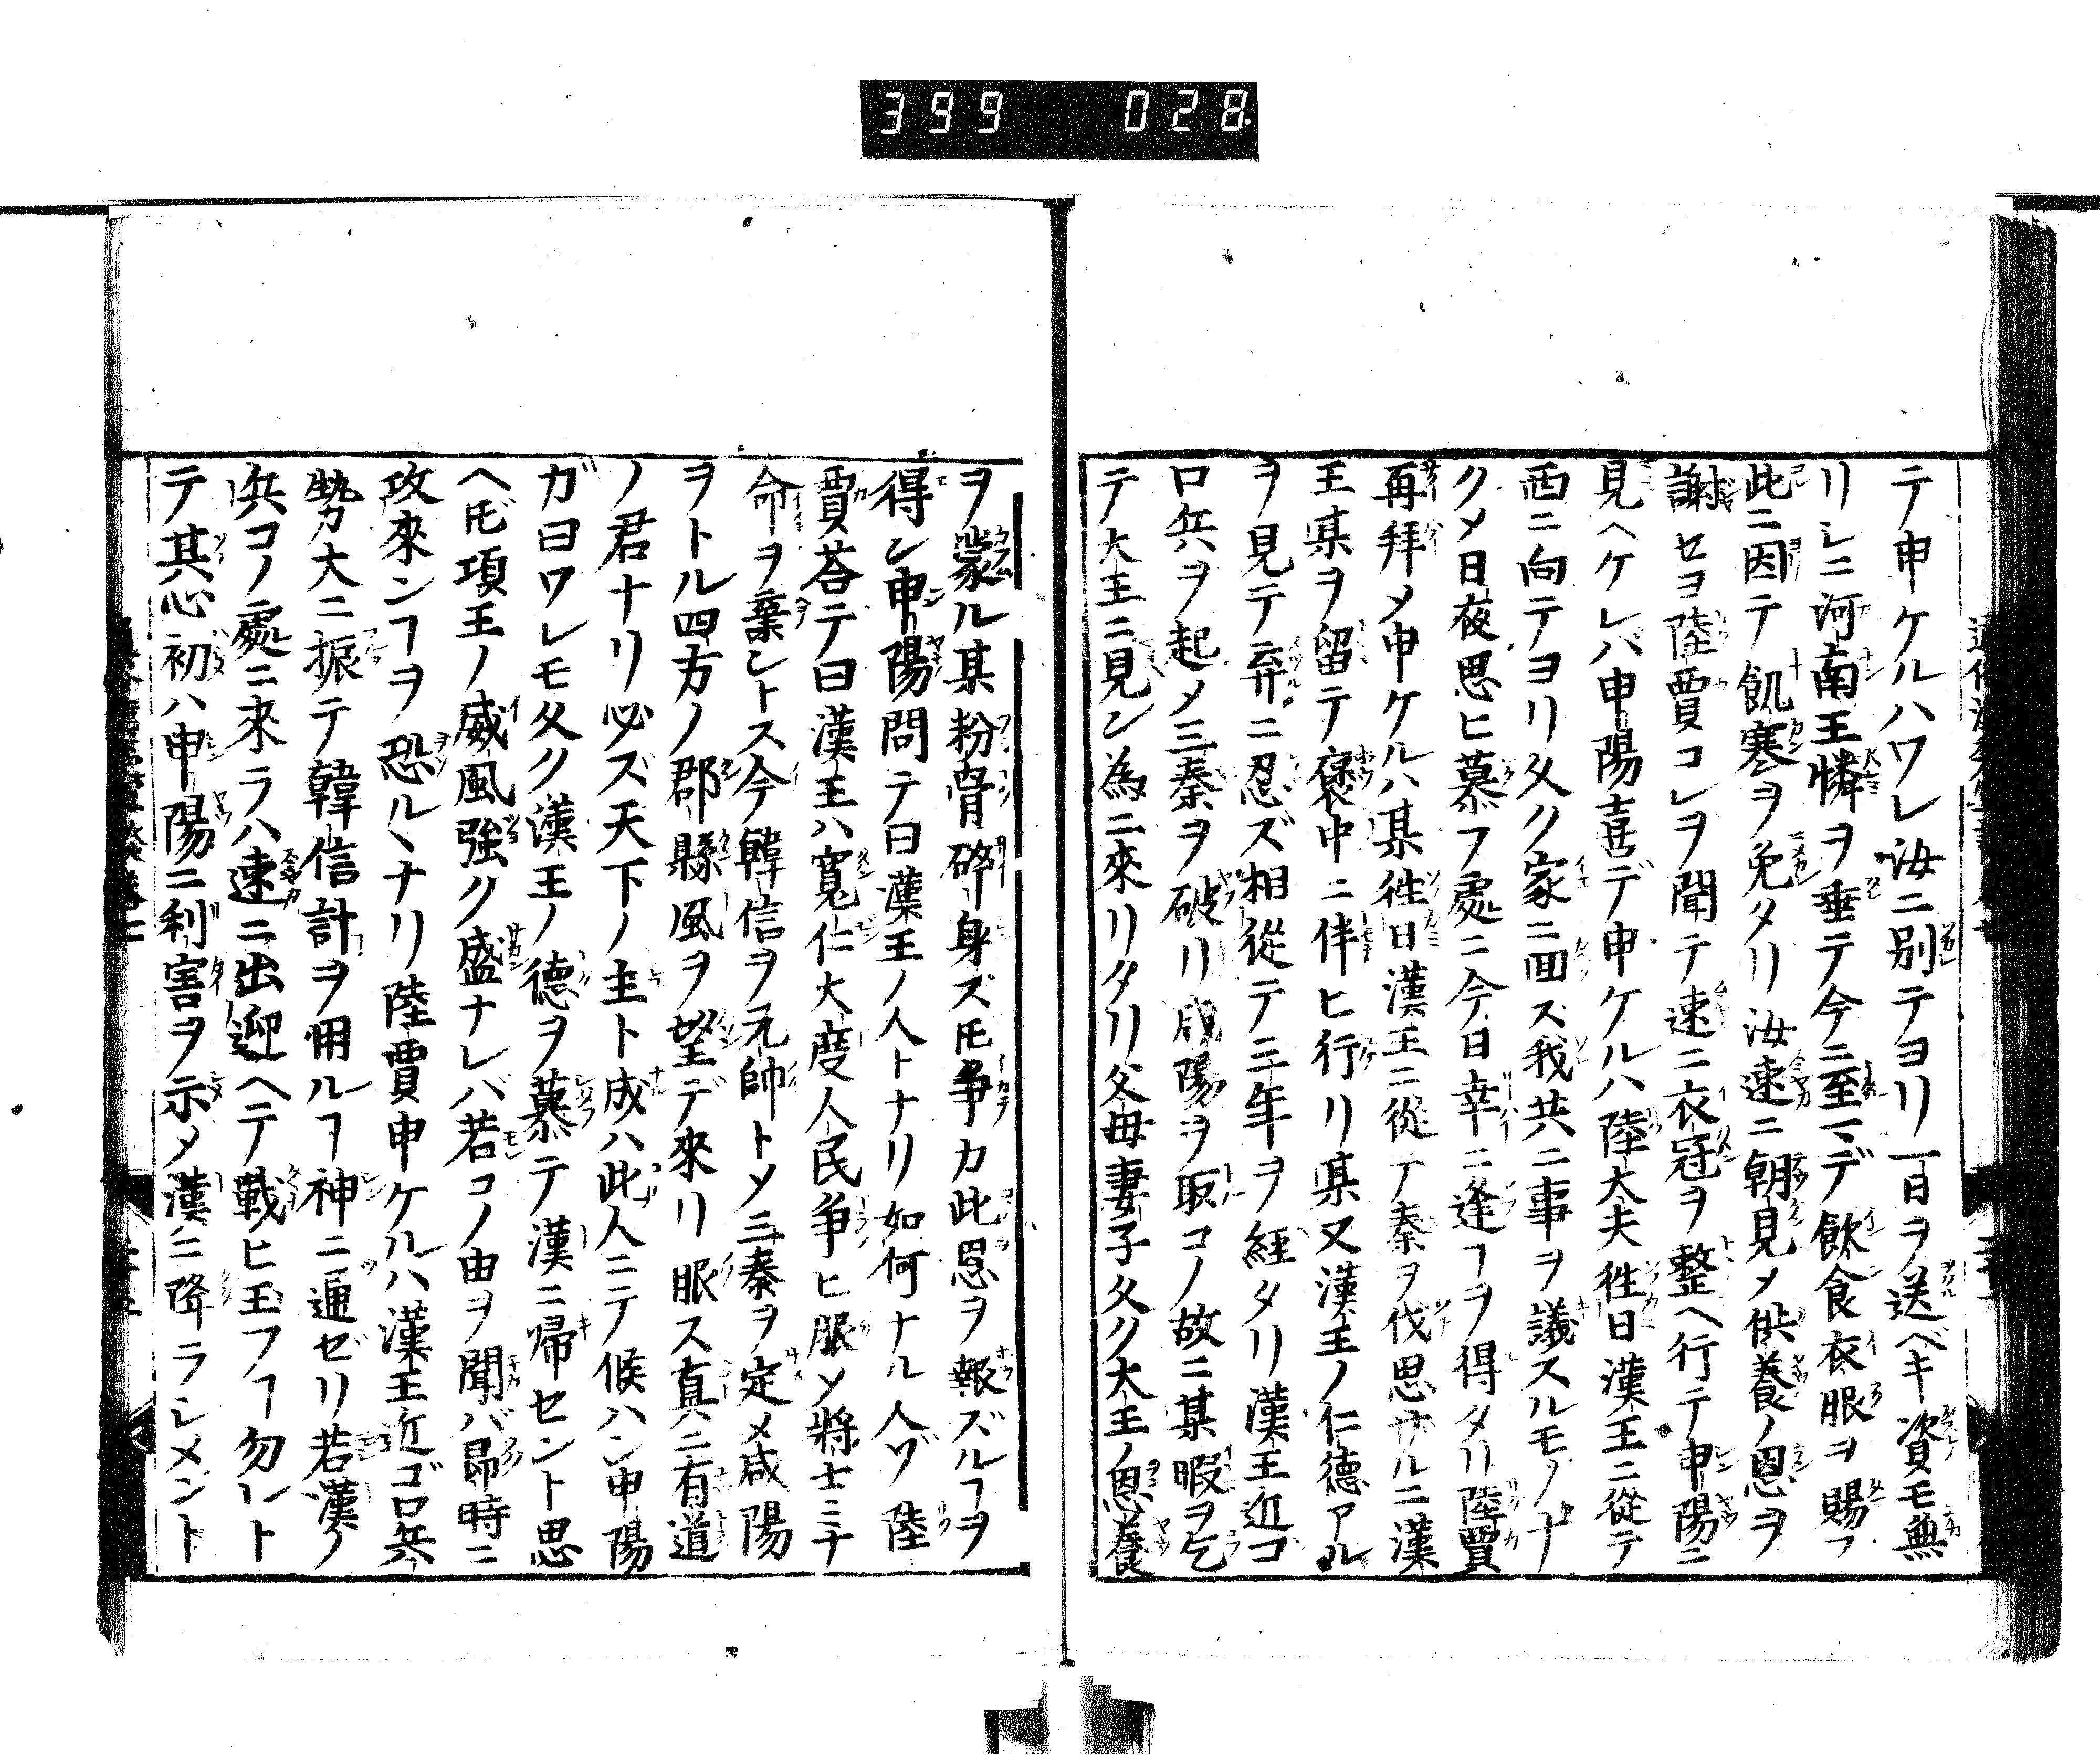 399 028
テ申ケルハワレ汝ニ別テヨリ一日ヲ送ベキ資モ無
リシニ河南王憐ヲ垂テ今ニ至マデ飲食衣服ヲ賜フ
此ニ因テ飢寒ヲ免タリ汝速ニ朝見メ供養ノ恩ヲ
謝セヨ陸賈コレヲ聞テ速ニ衣冠ヲ整ヘ行テ申陽ニ
見ヘケレバ申陽喜デ申ケルハ陸大夫徃日漢王ニ從テ
西ニ向テヨリ久ク家ニ面ス我共ニ事ヲ議スルモノナ
クメ日夜思ヒ慕フ處ニ今日幸ニ逢ヿヲ得タリ陸賈
再拜メ申ケルハ某徃日漢王ニ從テ秦ヲ伐思サルニ漢
王某ヲ留テ褒中ニ伴ヒ行リ某又漢王ノ仁德アル
ヲ見テ弃ニ忍ズ相從テ三年ヲ經タリ漢王近コ
ロ兵ヲ起メ三秦ヲ破リ咸陽ヲ取コノ故ニ某暇ヲ乞
テ大王ニ見ン為ニ來リタリ父母妻子久ク大王ノ恩養
ヲ蒙ル某粉骨碎身ズ𪜈争カ此恩ヲ報ズルヿヲ
得ン申陽問テ曰漢王ノ人トナリ如何ナル人ゾ陸
賈荅テ曰漢王ハ寬仁大度人民争ヒ服メ將士ミナ
命ヲ棄ントス今韓信ヲ元帥トメ三秦ヲ定メ咸陽
ヲトル四方ノ郡縣風ヲ望デ來リ服ス真ニ有道
ノ君ナリ必ズ天下ノ主ト成ハ此人ニテ候ハン申陽
ガ曰ワレモ久ク漢王ノ德ヲ慕テ漢ニ帰セント思
ヘ𪜈項王ノ威風強ク盛ナレバ若コノ由ヲ聞バ昂時ニ
攻來ンヿヲ恐ルヽナリ陸賈申ケルハ漢王近ゴロ兵
勢大ニ振テ韓信計ヲ用ルヿ神ニ通ゼリ若漢ノ
兵コノ處ニ來ラハ速ニ出迎ヘテ戰ヒ玉フヿ勿レト
テ其心初ハ申陽ニ利害ヲ示メ漢ニ降ラシメント